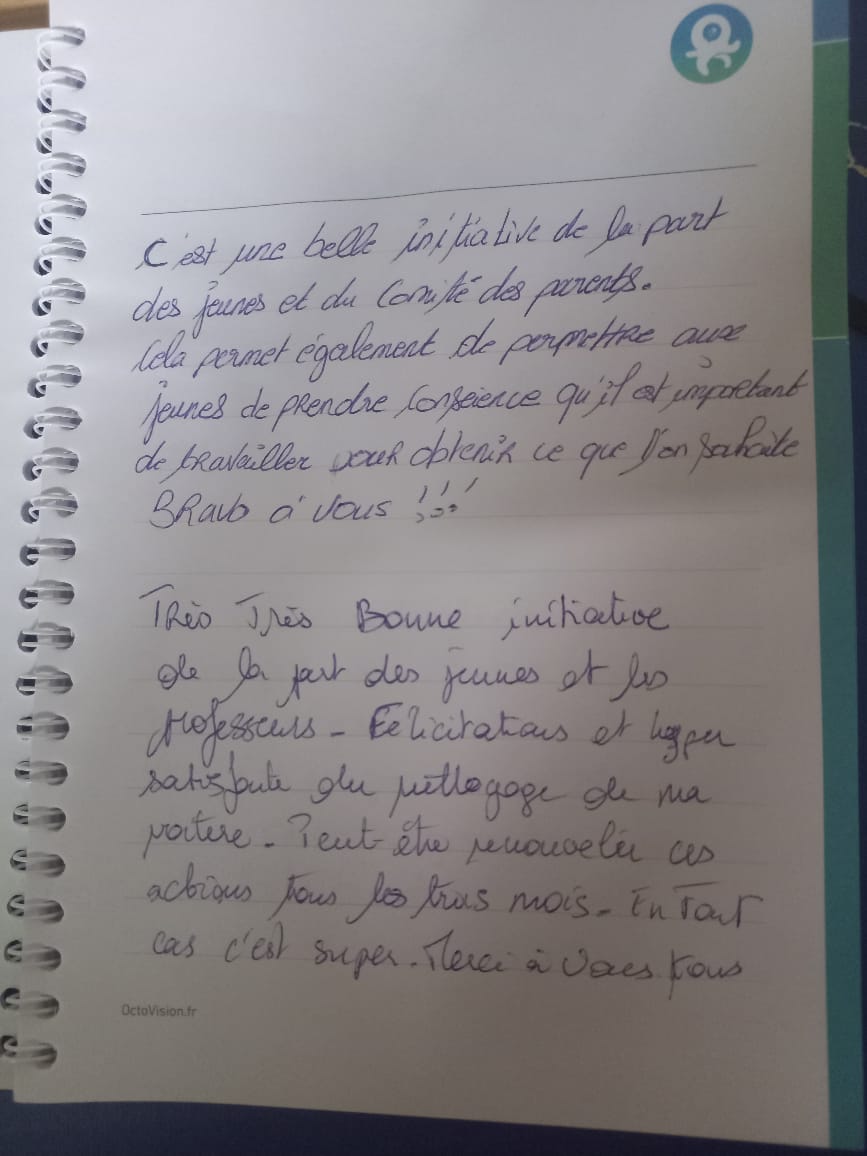 C'est une belle initiative de la part
des jeunes et du Comité des parents.
Cela permet également de permettre aux
jeunes de prendre conscience qu'il est important
de travailler pour obtenir ce que l'on souhaite
BRavo à vous !!!
Très Très Bonne initiative
de la part des jeunes et les
professeurs - Félicitations et hyper
satisfaite du de ma
voiture - Peut-être renouveler ces
actions tous les trois mois - En Tout
cas c'est super - Merci à vous tous
OctoVision.fr